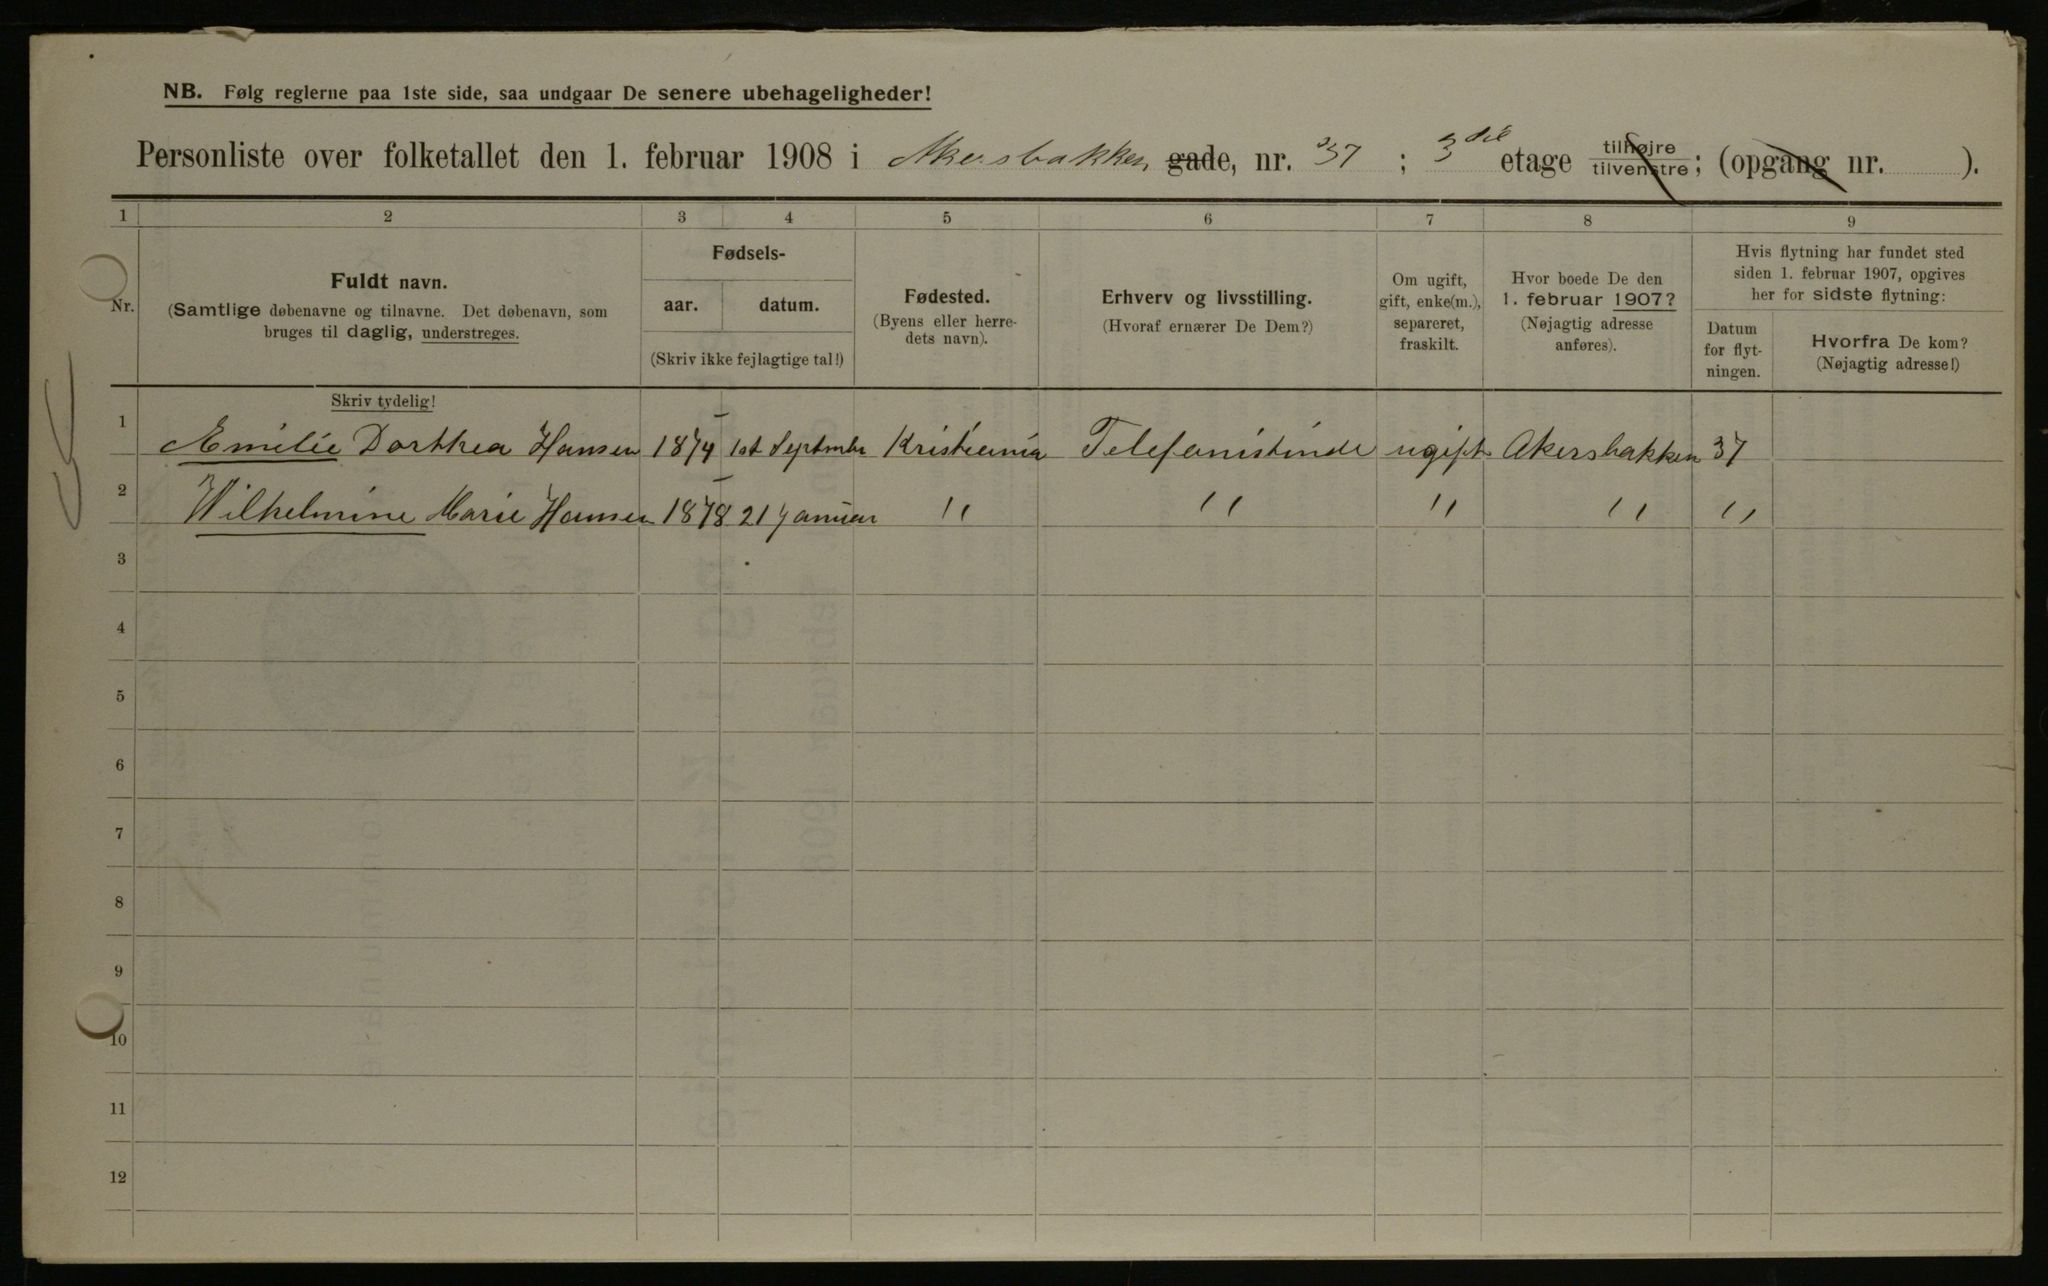 NB. Følg reglerne paa 1ste side, saa undgaar De senere ubehageligheder!
Personliste over folketallet den 1. februar 1908 i Akersbakken gade, nr. 37 ; 3die etage tilhøjre tilvenstre; (opgang nr. ).
1 2 3 4 5 6 7 8 9
Nr.
Fuldt navn.
(Samtlige døbenavne og tilnavne. Det døbenavn, som
bruges til daglig, understreges.
Fødsels-
aar. datum.
(Skriv ikke fejlagtige tal!)
Fødested.
(Byens eller herre-
dets navn).
Erhverv og livsstilling.
(Hvoraf ernærer De Dem?)
Om ugift,
gift, enke(m.),
separeret,
fraskilt.
Hvor boede De den
1. februar 1907?
(Nøjagtig adresse
anføres).
Hvis flytning har fundet sted
siden 1. februar 1907, opgives
her for sidste flytning:
Datum
for flyt-
ningen.
Hvorfra De kom?
(Nøjagtig adresse!)
Skriv tydelig!
1 Emilie Dorthea Hansen 1874 1st September Kristiania Telefonistinde ugift Akersbakken 37
2 Wilhelmine Marie Hansen 1878 21 Januar " " " " "
3
4
5
6
7
8
9
10
11
12